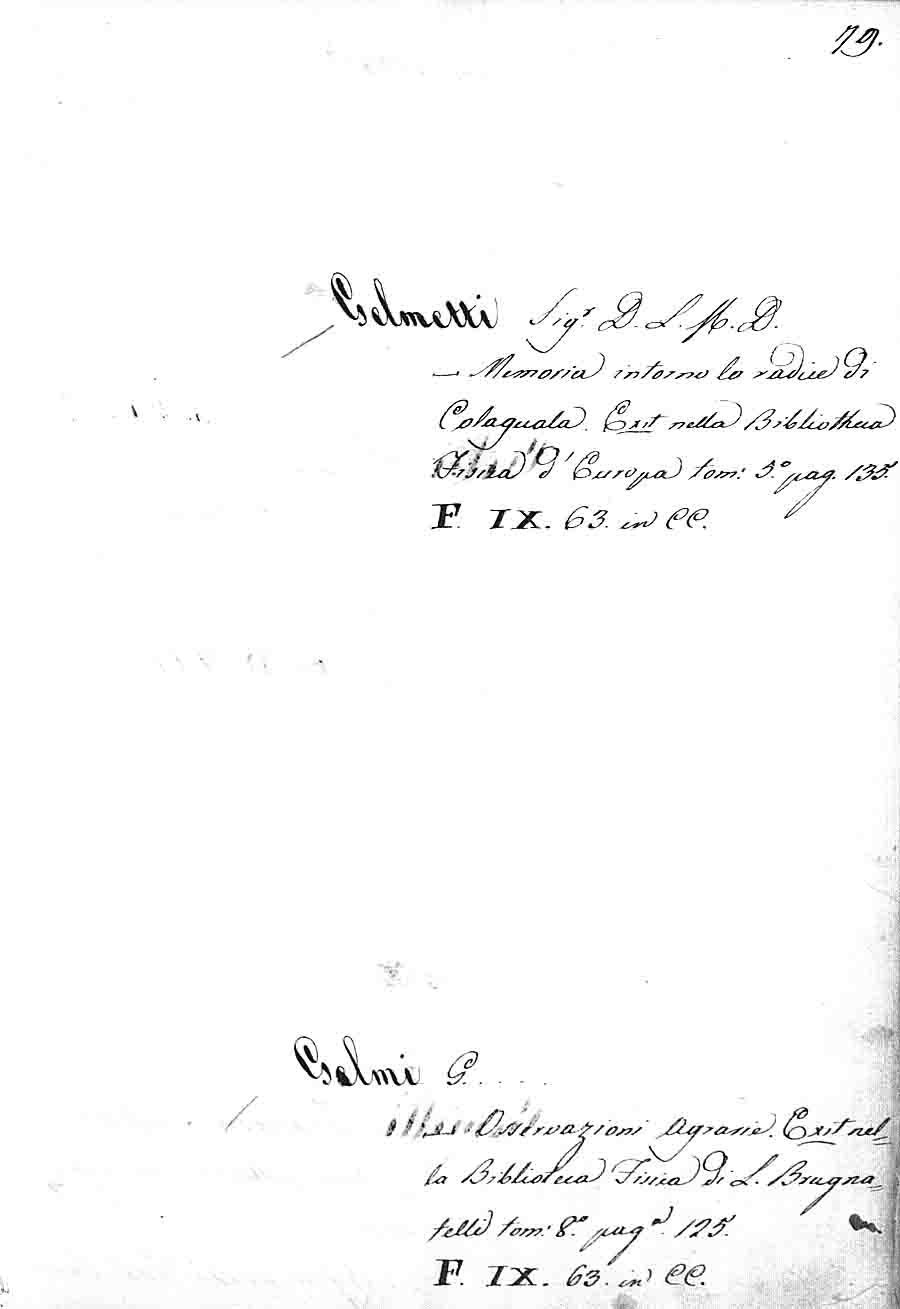 79.
Gelmetti Sigr. D. L. M. D.
— Memoria intorno la radice di
Calaguala. Exit nella Bibliotheca
Fisica d'Europa tom: 5.° pag. 135.
F. IX. 63. in CC.
Gelmi G. . . . .
— Osservazioni Agrarie. Exit nel=
la Biblioteca Fisica di L. Brugna=
telli tom: 8.° pag.a 125.
F. IX. 63. in CC.